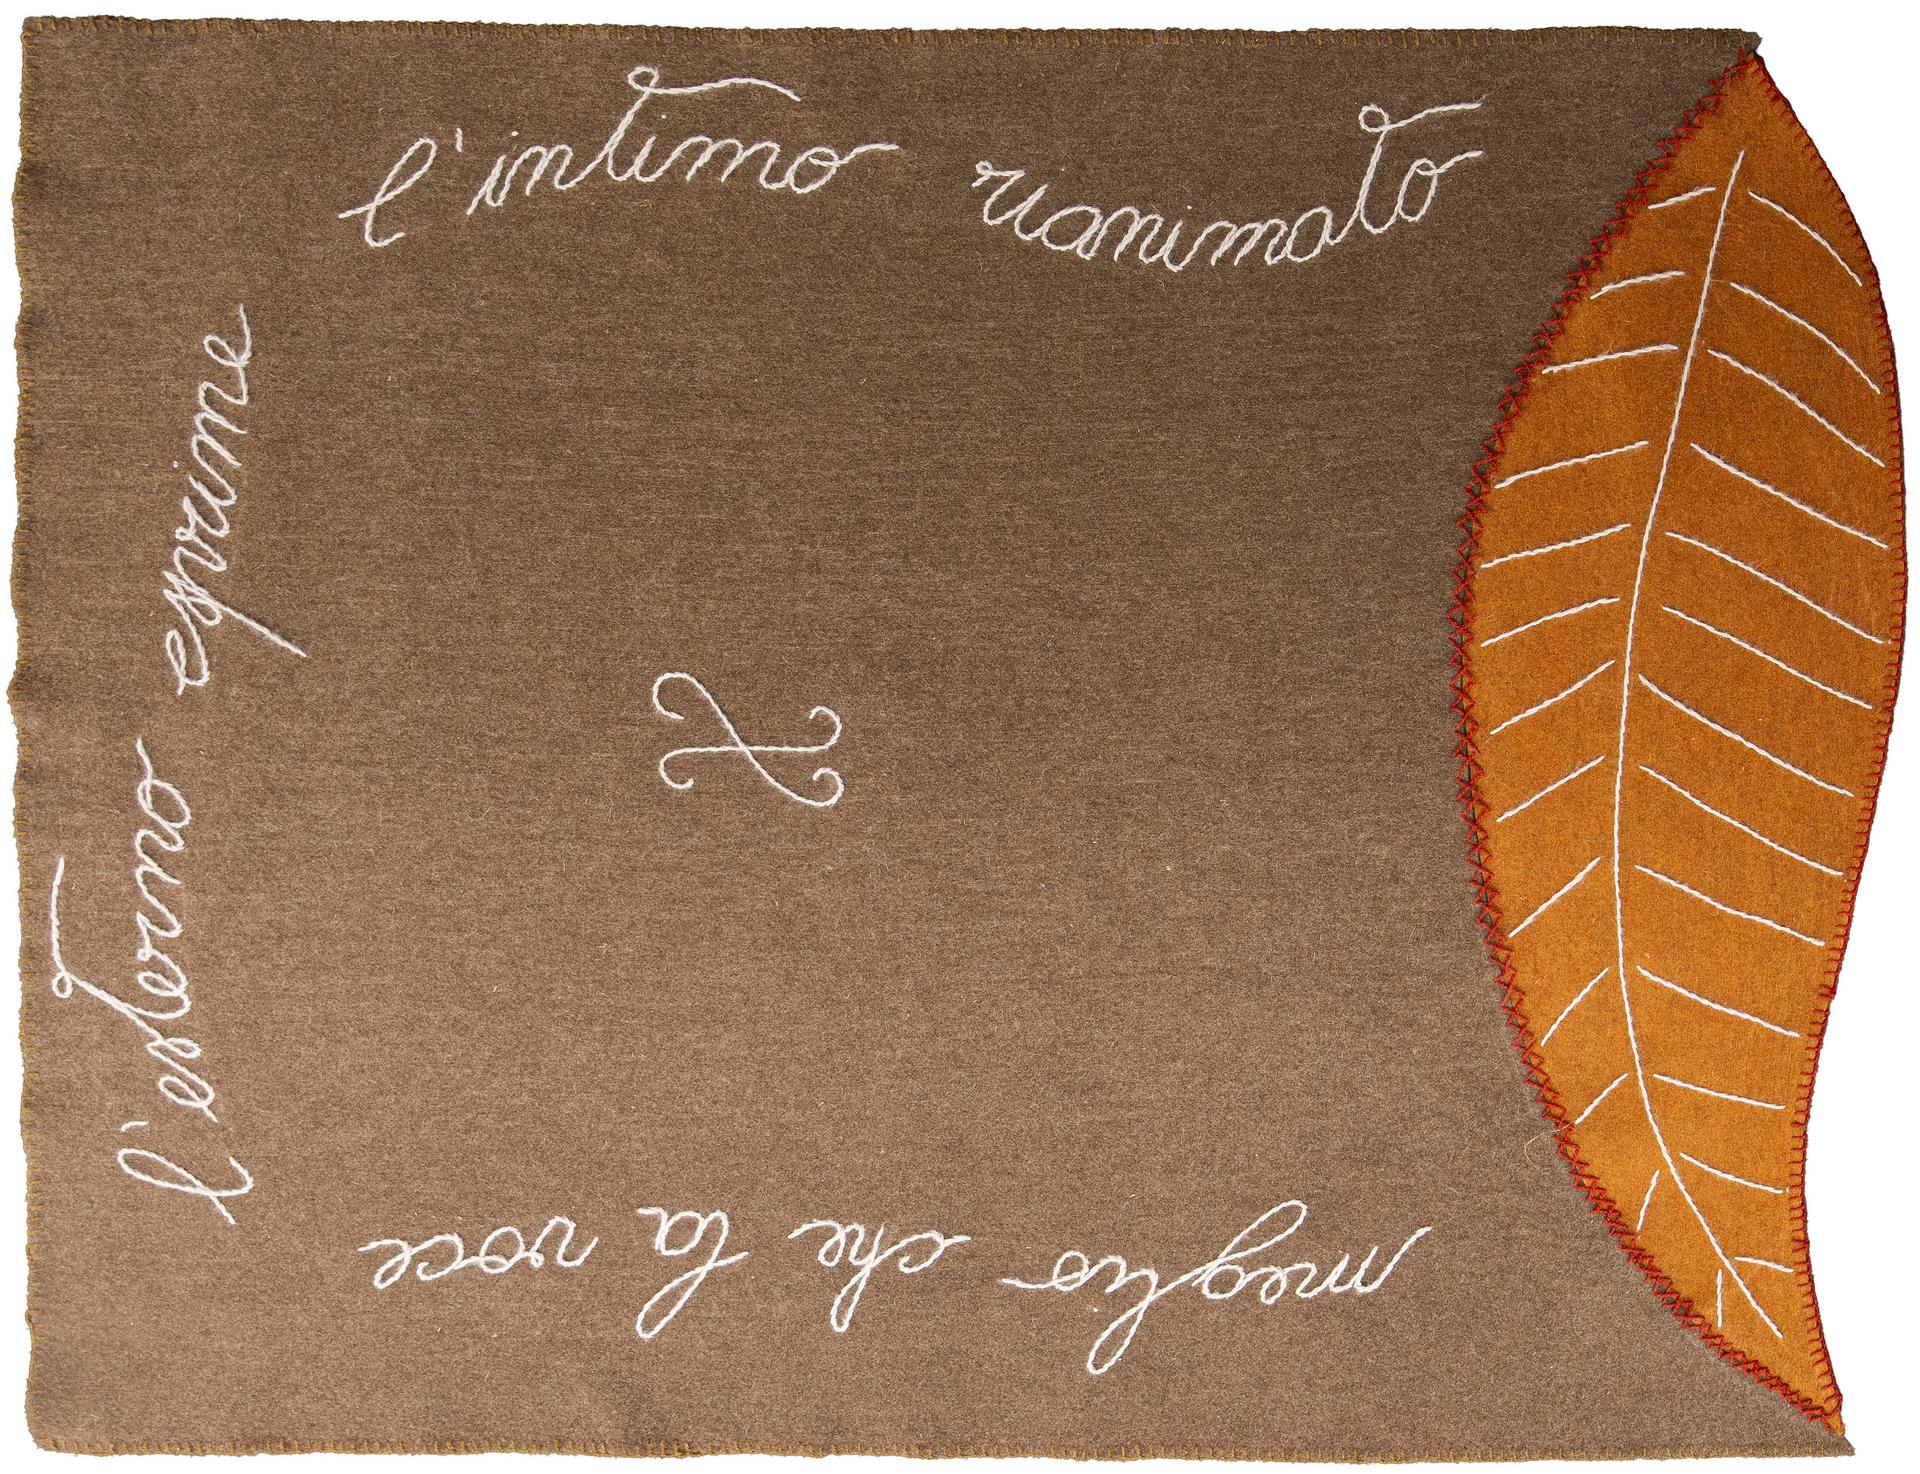 l'esterno esprime
l'intimo rianimato
meglio che la voce